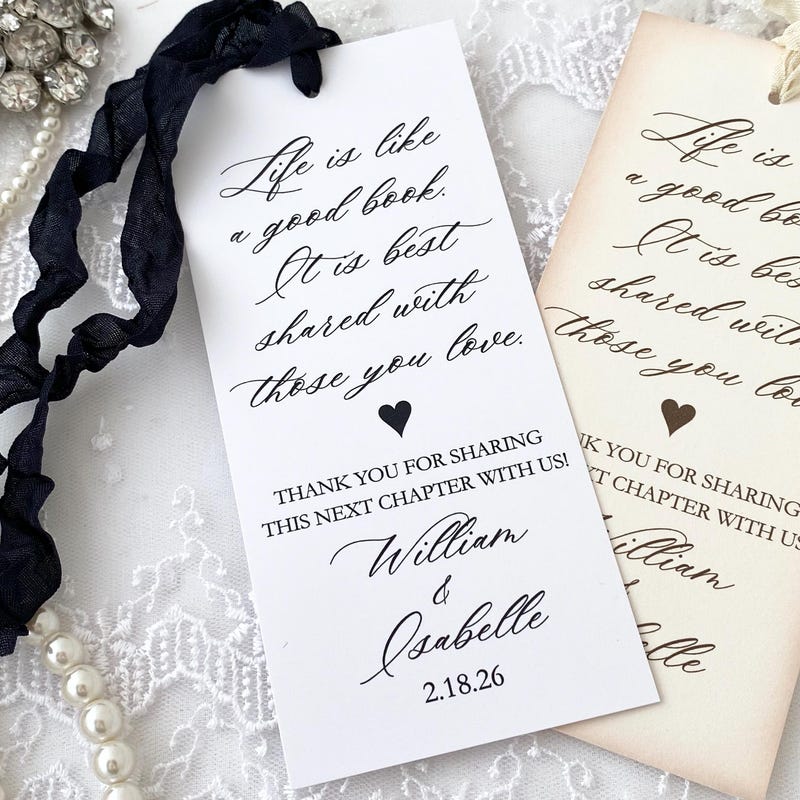 Life is like
a good book.
It is best
shared with
those you love.
THANK YOU FOR SHARING
THIS NEXT CHAPTER WITH US!
William
&
Isabelle
2.18.26
Life is
a good
It is
shared with
those you
YOU FOR SHARING
CHAPTER WITH US
William